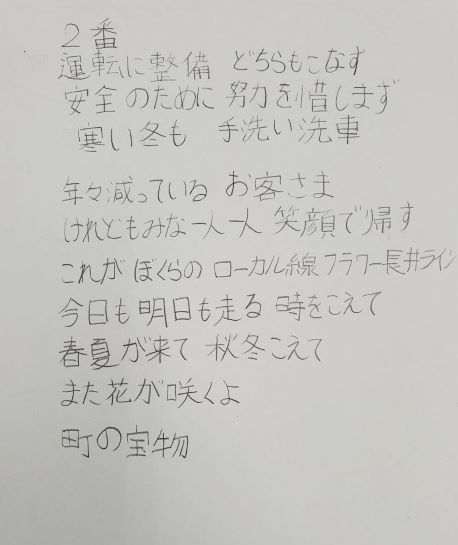 ２番
運転に整備 どちらもこなす
安全のために 努力を惜しまず
寒い冬も 手洗い洗車
年々減っている お客さま
けれどもみな一人一人 笑顔で帰す
これが ぼくらの ローカル線 フラワー長井ライン
今日も明日も走る 時をこえて
春夏が来て 秋冬こえて
また花が咲くよ
町の宝物